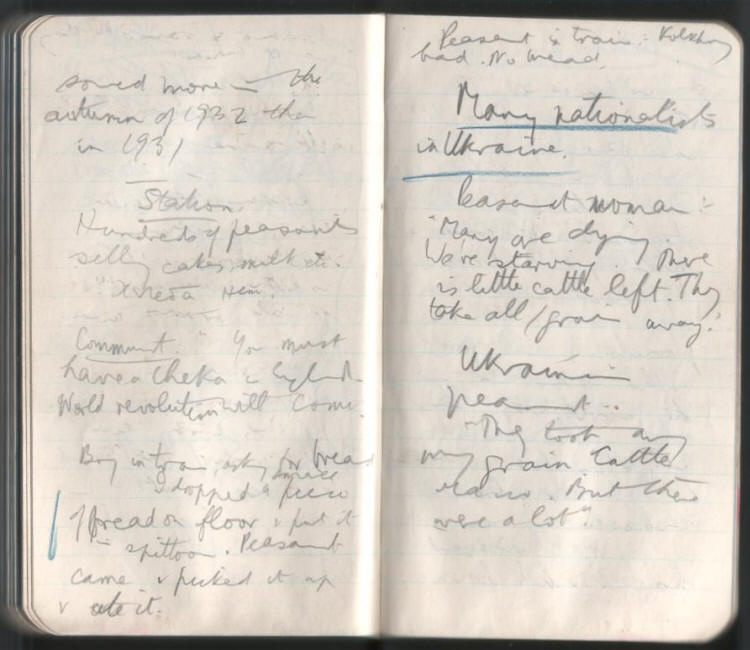 sowed more in the
autumn of 1932 than
in 1931
Station
Hundreds of peasants
selling cakes, milk etc.
хлеба нет.
Communist. "You must
have a Cheka in England
World revolution will come.
Boy in train, asking for bread
I dropped a small piece
of bread on floor & put it
in spittoon. Peasant
came & picked it up
& ate it.
Peasant in train: Kolkhoz
bad. No bread.
Many nationalists
in Ukraine.
Peasant woman:-
"Many are dying.
We're starving. There
is little cattle left. They
take all grain away."
Ukrainian
peasant:
"They took away
my grain. Cattle
But there
were a lot"